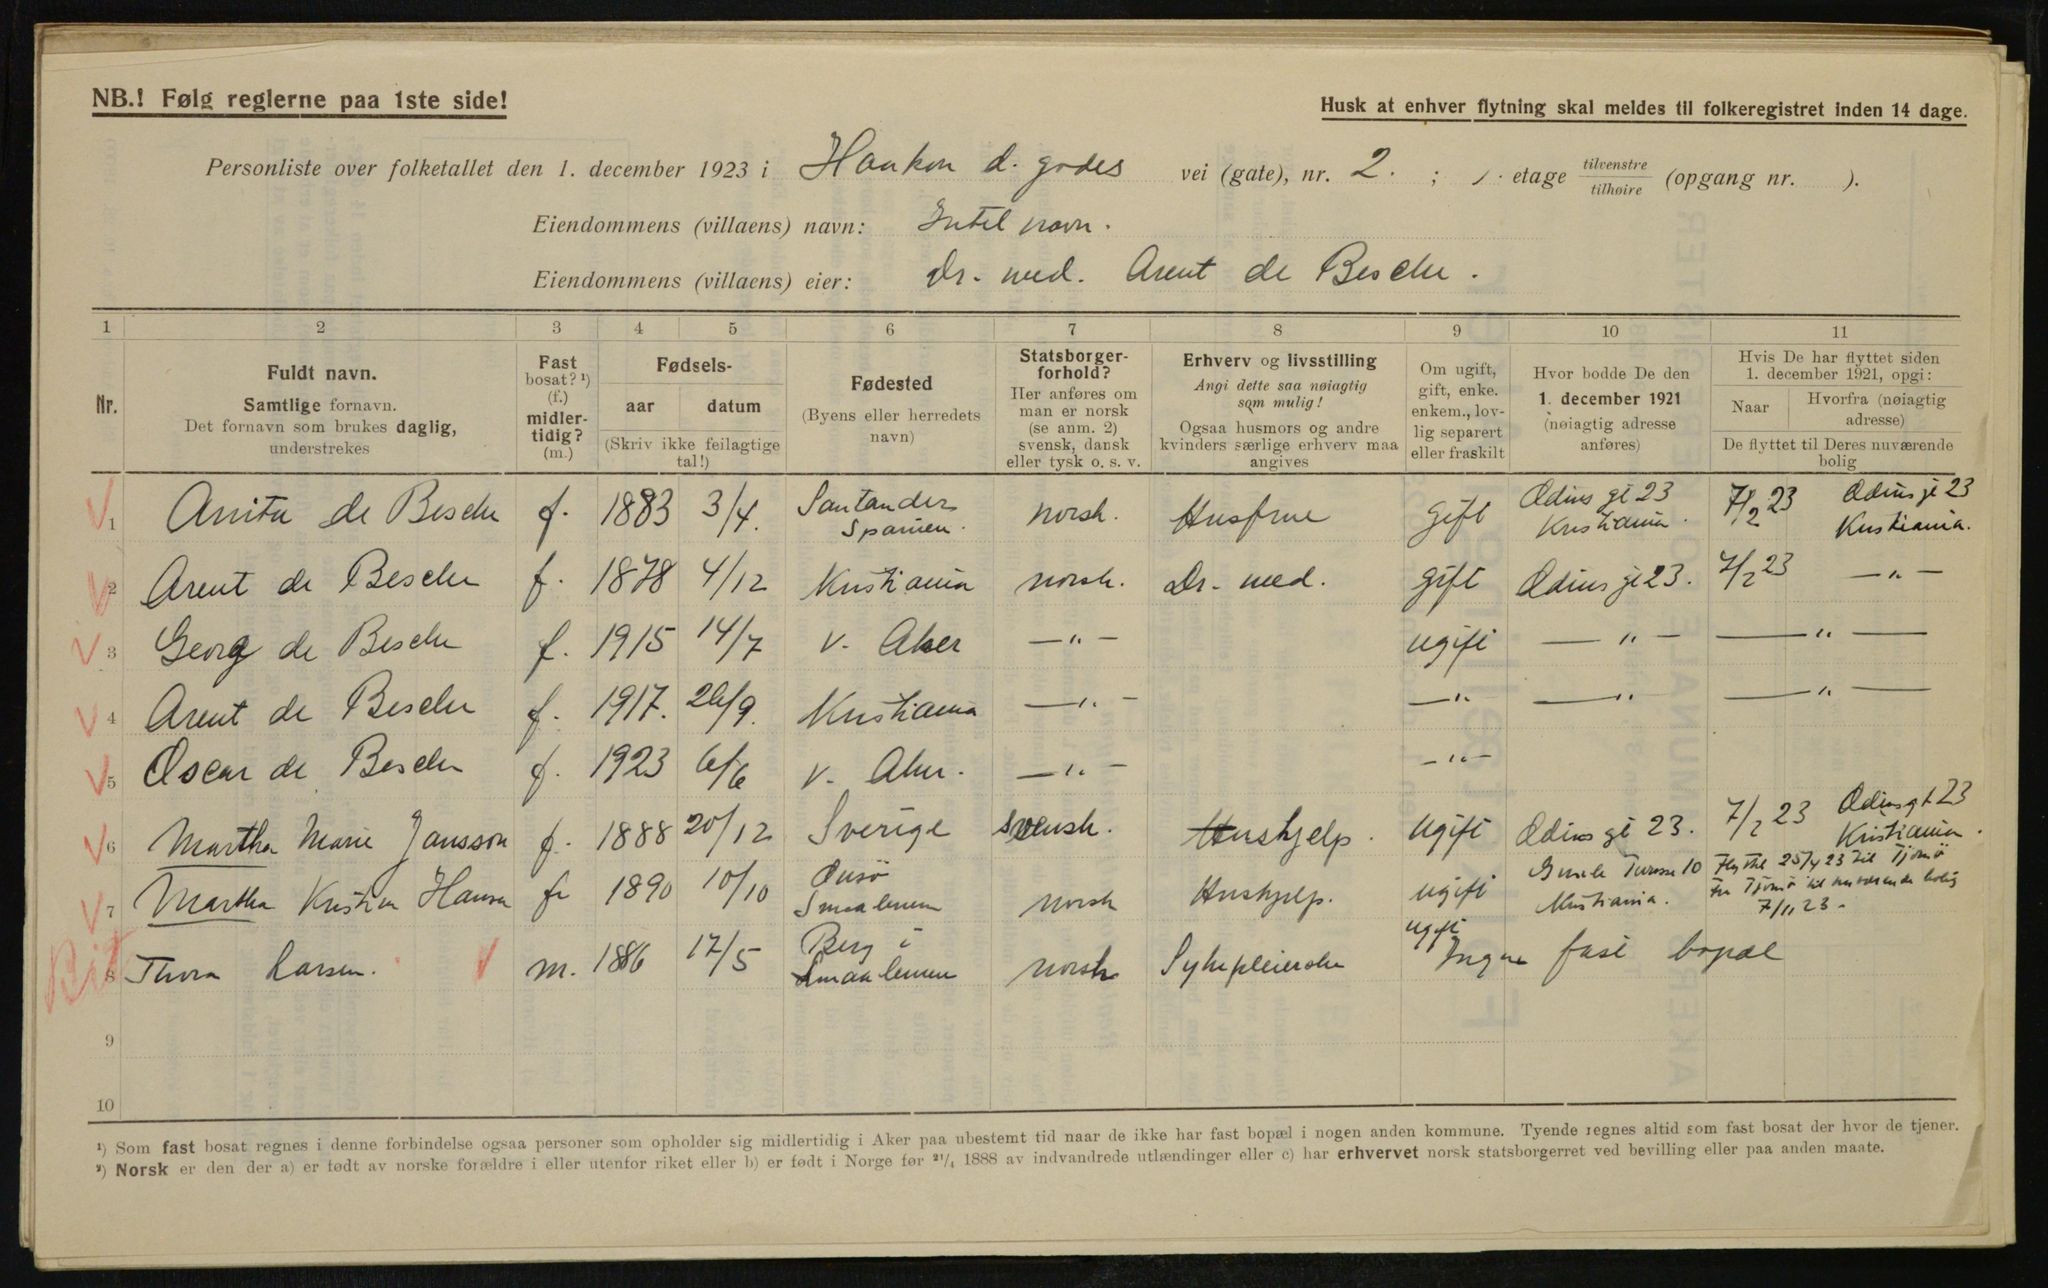 NB.! Følg reglerne paa 1ste side!
Husk at enhver flytning skal meldes til folkeregistret inden 14 dage.
Personliste over folketallet den 1. december 1923 i Haakon d. godes vei (gate), nr. 2. ; 1. etage tilvenstre/tilhøire (opgang nr. ).
Eiendommens (villaens) navn: Intet navn.
Eiendommens (villaens) eier: Dr. med. Arent de Besche.
1 2 3 4 5 6 7 8 9 10 11
Nr.
Fuldt navn.
Samtlige fornavn.
Det fornavn som brukes daglig,
understrekes
Fast
bosat? ¹)
(f.)
midler-
tidig?
(m.)
Fødsels-
aar datum
(Skriv ikke feilagtige
tal!)
Fødested
(Byens eller herredets
navn)
Statsborger-
forhold?
Her anføres om
man er norsk
(se anm. 2)
svensk, dansk
eller tysk o. s. v.
Erhverv og livsstilling
Angi dette saa nøiagtig
som mulig!
Ogsaa husmors og andre
kvinders særlige erhverv maa
angives
Om ugift,
gift, enke.
enkem., lov-
lig separert
eller fraskilt
Hvor bodde De den
1. december 1921
(nøiagtig adresse
anføres)
Hvis De har flyttet siden
1. december 1921, opgi:
Naar Hvorfra (nøiagtig
adresse)
De flyttet til Deres nuværende
bolig
1 Anita de Besche f. 1883 3/4. Santander Spanien. norsk. Husfrue gift Odins gt 23 Kristiania. 7/2 23 Odins gt 23 Kristiania.
2 Arent de Besche f. 1878 4/12 Kristiania norsk. Dr. med. gift Odins gt 23. 7/2 23 —"—
3 Georg de Besche f. 1915 14/7 V. Aker —"— ugift —"— —"—
4 Arent de Besche f. 1917. 26/9. Kristiania —"— —"— —"— —"—
5 Oscar de Besche f. 1923 6/6 V. Aker. —"— —"—
6 Martha Marie Jansson f. 1888 20/12 Sverige svensk. Hushjelp. ugift Odins gt 23. 7/2 23 Odins gt 23 Kristiania.
7 Martha Kristine Hansen f. 1890 10/10 Onsö Smaalenene norsk Hushjelp. ugift 10 Kristiania. 25/4 23 til Tjömö fra Tjömö til nuværende bolig 7/11 23.
8 Thora Larsen. m. 1886 17/5 Berg i Smaalenene norsk Sykepleierske ugift Ingen fast bopæl
9
10
¹) Som fast bosat regnes i denne forbindelse ogsaa personer som opholder sig midlertidig i Aker paa ubestemt tid naar de ikke har fast bopæl i nogen anden kommune. Tyende regnes altid som fast bosat der hvor de tjener.
²) Norsk er den der a) er født av norske forældre i eller utenfor riket eller b) er født i Norge før ²¹/₄ 1888 av indvandrede utlændinger eller c) har erhvervet norsk statsborgerret ved bevilling eller paa anden maate.